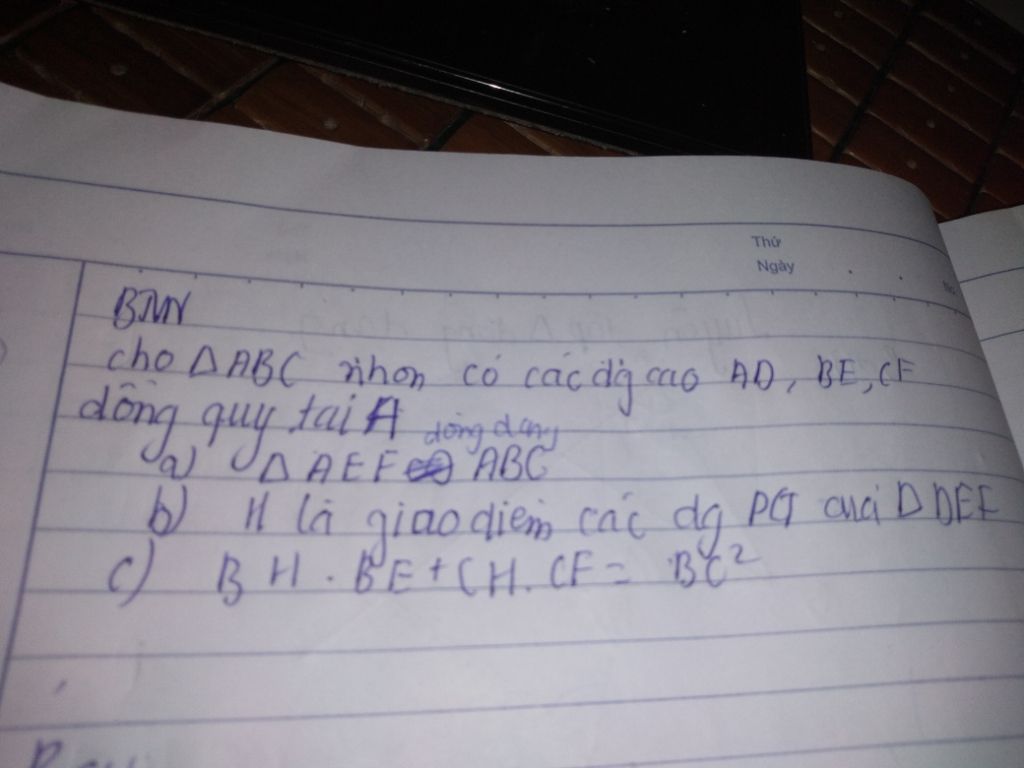 Thứ
Ngày
BNN
cho △ABC nhọn có các đg cao AD, BE, CF
đồng quy tại A
đồng dạng
a) △AEF ABC
b) H là giao điểm các đg PG của △DEF
c) BH.BE+CH.CF= BC²